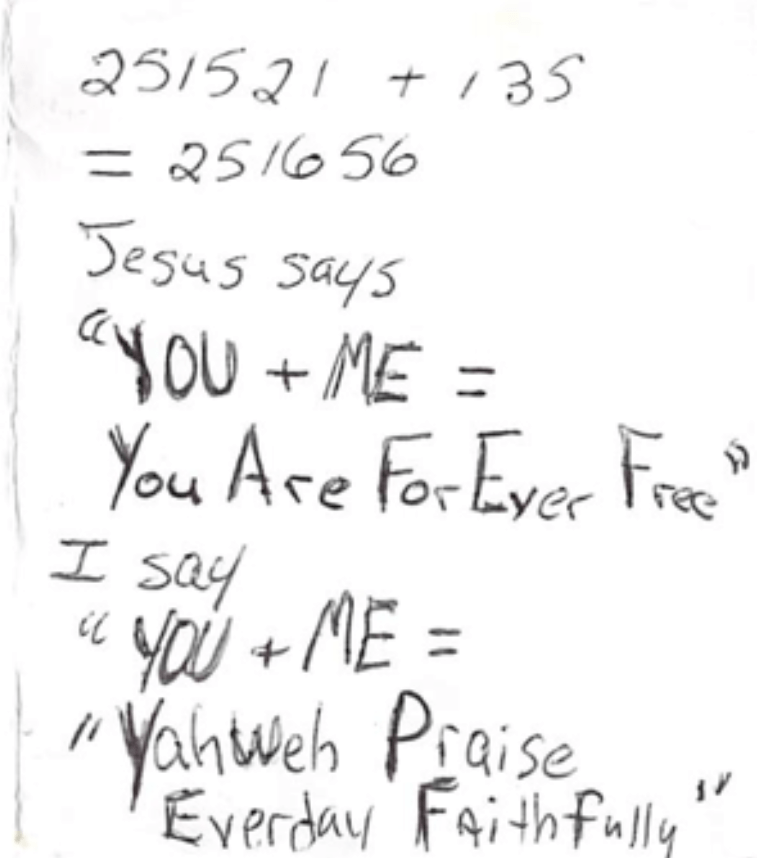 251521 + 135
= 251656
Jesus says
"YOU + ME =
You Are ForEver Free"
I say
"YOU + ME =
"Yahweh Praise
Everday Faithfully"